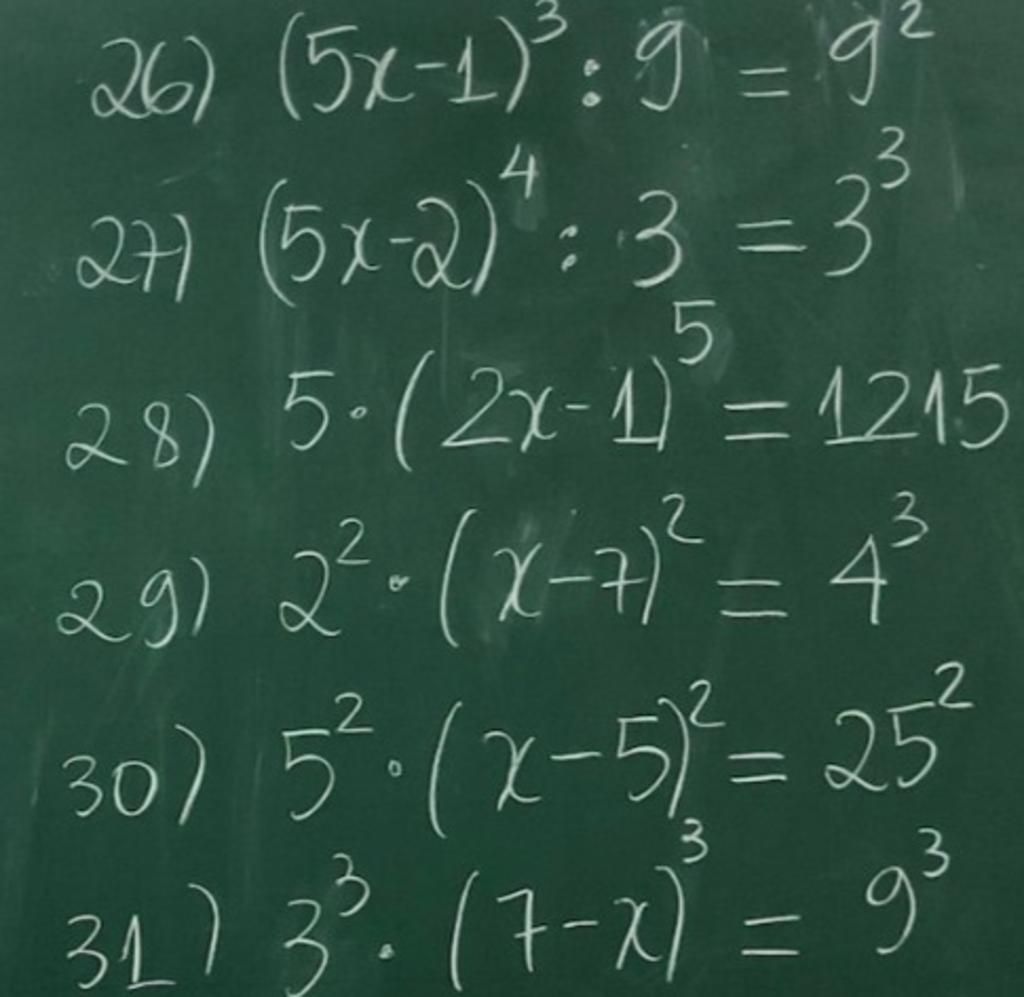 26) (5x-1)³ : 9 = 9²
27) (5x-2)⁴ : 3 = 3³
28) 5·(2x-1)⁵ = 1215
29) 2²·(x-7)² = 4³
30) 5²·(x-5)² = 25²
31) 3³·(7-x)³ = 9³